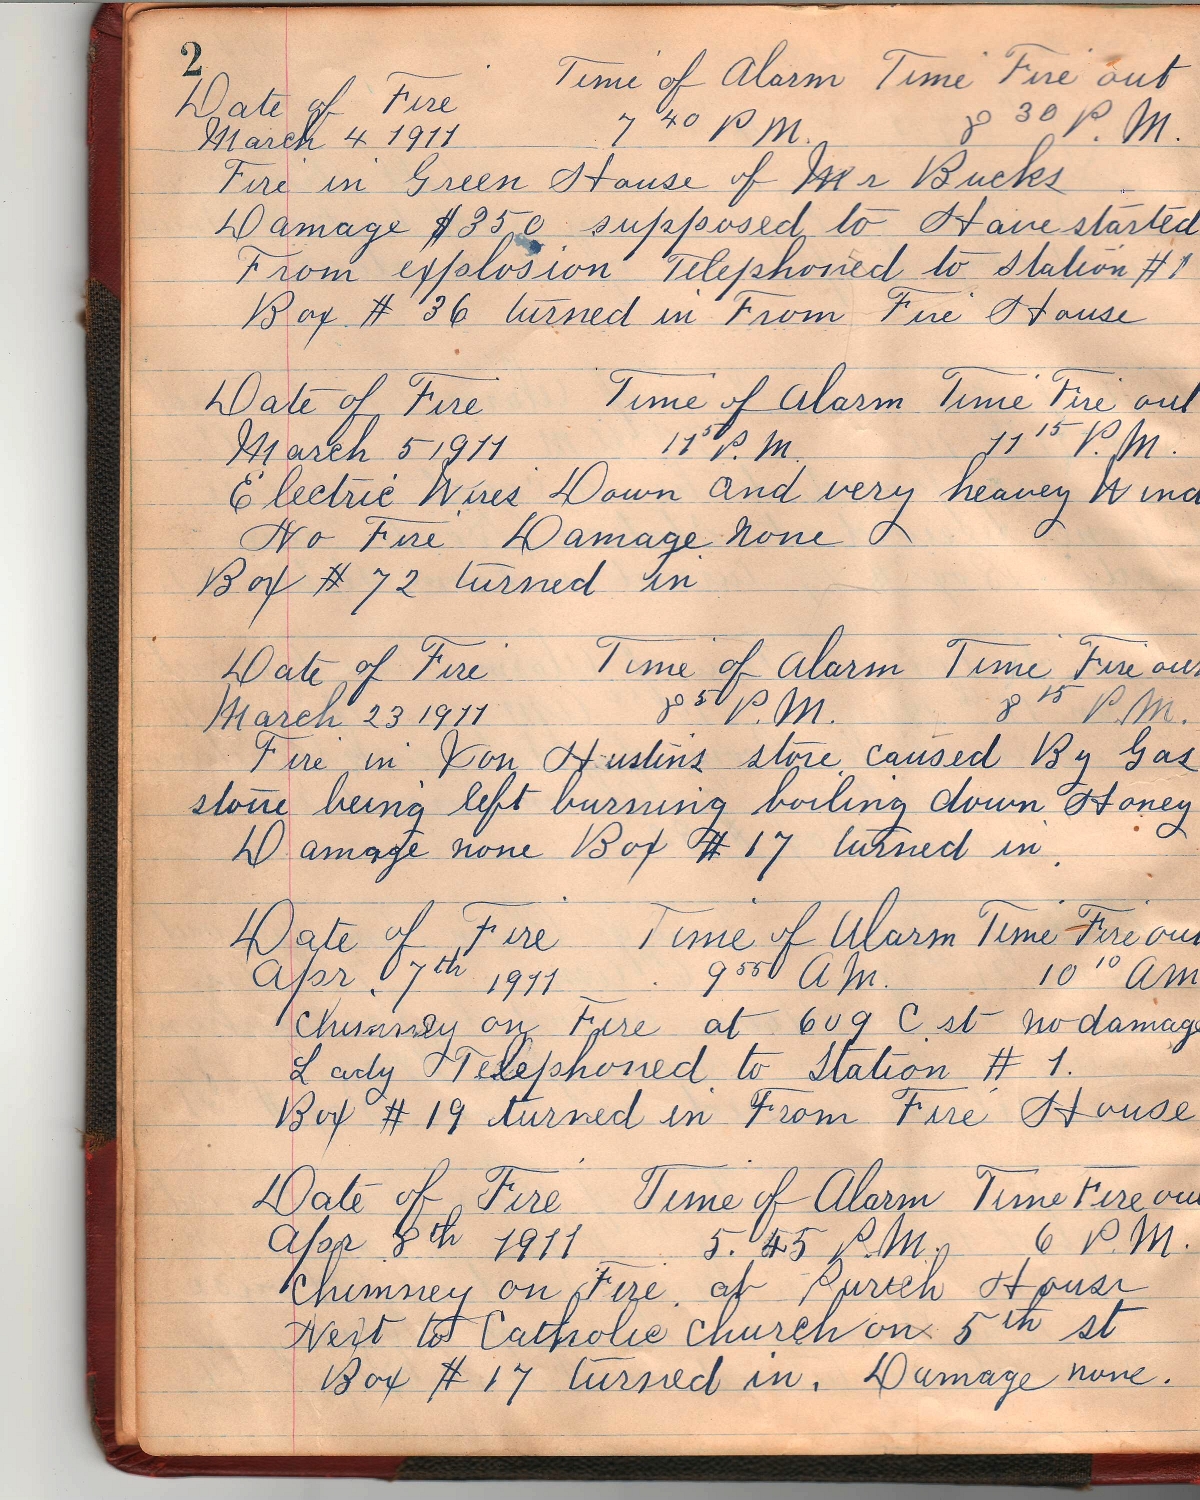 2
Date of Fire Time of Alarm Time Fire out
March 4 1911 7 40 P M. 8 30 P. M.
Fire in Green House of Mr Bucks
Damage $350 supposed to Have started
From explosion Telephoned to Station #1
Box # 36 turned in From Fire House
Date of Fire Time of Alarm Time Fire out
March 5 1911 11 5 P. M. 11 15 P. M.
Electric Wires Down and very heavey Wind
No Fire Damage None
Box # 72 turned in
Date of Fire Time of Alarm Time Fire out
March 23 1911 8 5 P.M. 8 15 P.M.
Fire in Von Hustins store caused By Gas
stove being left burning boiling down Honey
Damage none Box # 17 turned in.
Date of Fire Time of Alarm Time Fire out
Apr. 7th 1911 9 55 A M. 10 10 AM
Chimney on Fire at 609 C st no damage
Lady Telephoned to Station # 1.
Box # 19 turned in From Fire House
Date of Fire Time of Alarm Time Fire out
Apr 8th 1911 5. 45 P.M. 6 P.M.
Chimney on Fire. at House
Next to Catholic Church on 5th st
Box # 17 turned in. Damage none.